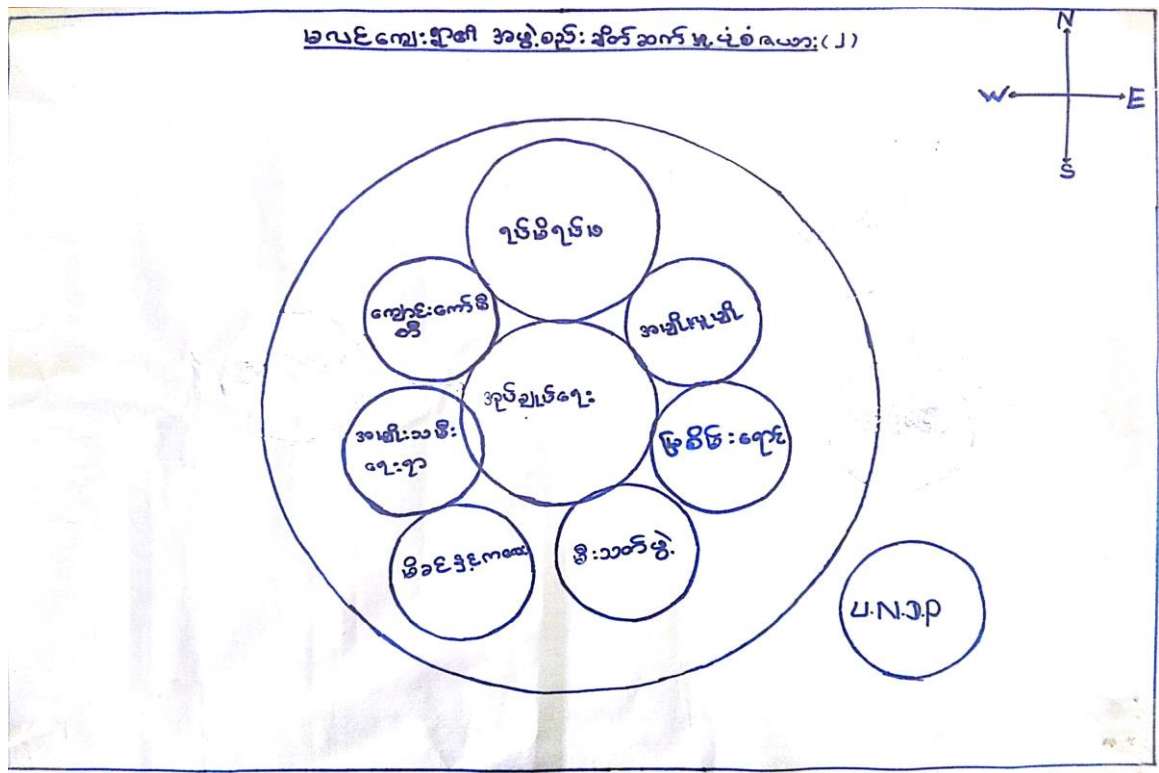 မလင်ကျေးရွာ၏ အဖွဲ့စည်းချိတ်ဆက်မှု ပုံစံဇယား(၂)
N
W E
S
ရပ်မိရပ်ဖ
ကျောင်းကော်မ
တီ
အမျိုးယုမျို
အုပ်ချုပ်ရေး
အမျိုးသမီး
ရေးရာ
မြစိမ်းရောင်
မိခင်နှင့်ကလေး
မီးသတ်ဖွဲ့
U.N.D.P